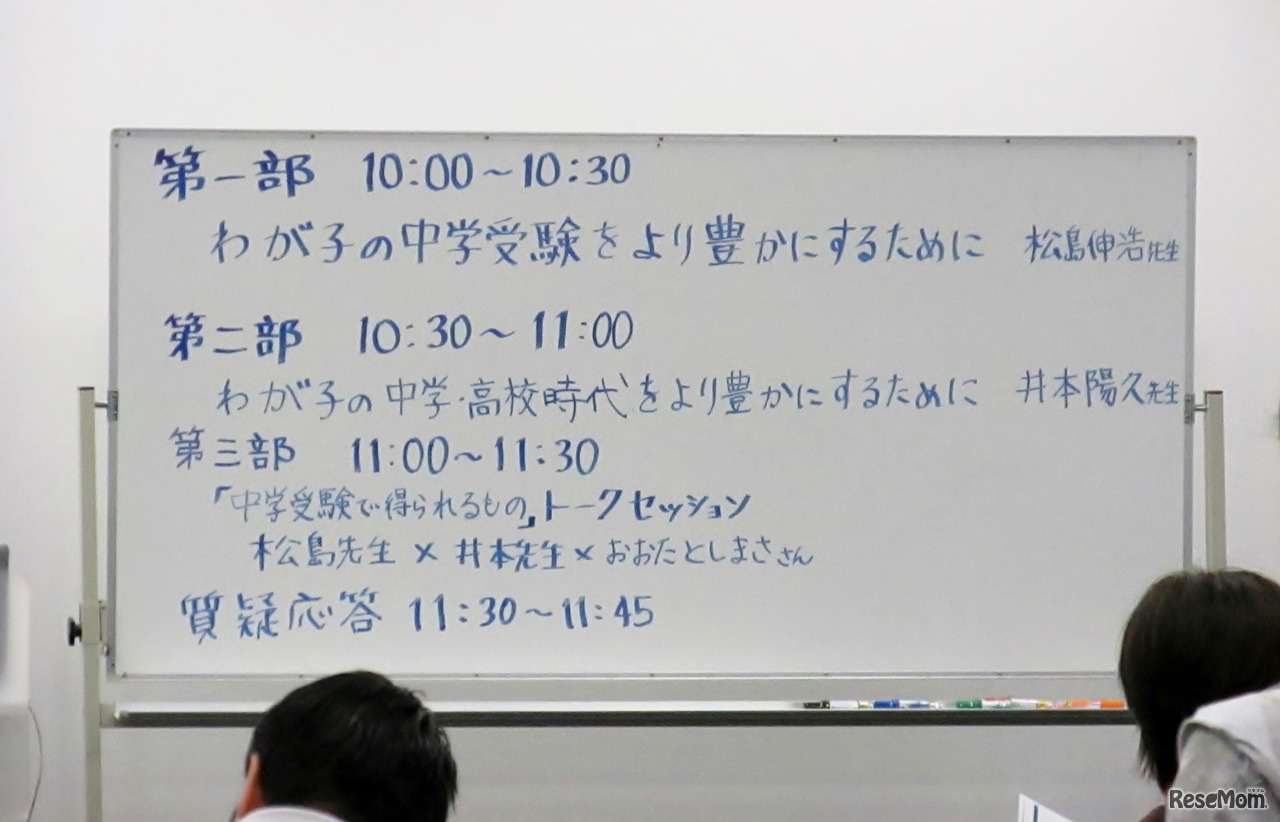 第一部 10:00～10:30
わが子の中学受験をより豊かにするために 松島伸浩先生
第二部 10:30～11:00
わが子の中学・高校時代をより豊かにするために 井本陽久先生
第三部 11:00～11:30
「中学受験で得られるもの」トークセッション
松島先生×井本先生×おおたとしまささん
質疑応答 11:30～11:45
ReseMom.